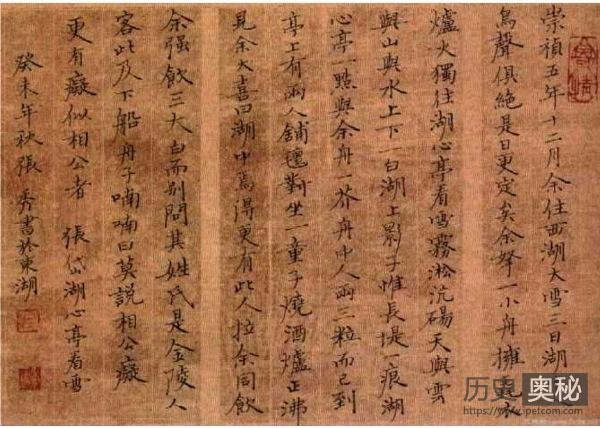 崇禎五年十二月余住西湖大雪三日湖
鳥聲俱絕是日更定矣余拏一小舟擁毳衣
爐火獨往湖心亭看雪霧淞沆碭天與雲
與山與水上下一白湖上影子惟長堤一痕湖
心亭一點與余舟一芥舟中人兩三粒而已到
亭上有兩人鋪氈對坐一童子燒酒爐正沸
見余大喜曰湖中焉得更有此人拉余同飲
余强飲三大白而別問其姓氏是金陵人
客此及下船舟子喃喃曰莫說相公癡
更有癡似相公者 張岱湖心亭看雪
癸未年秋張秀書於東湖
历史奥秘
https://www.ipetcom.com